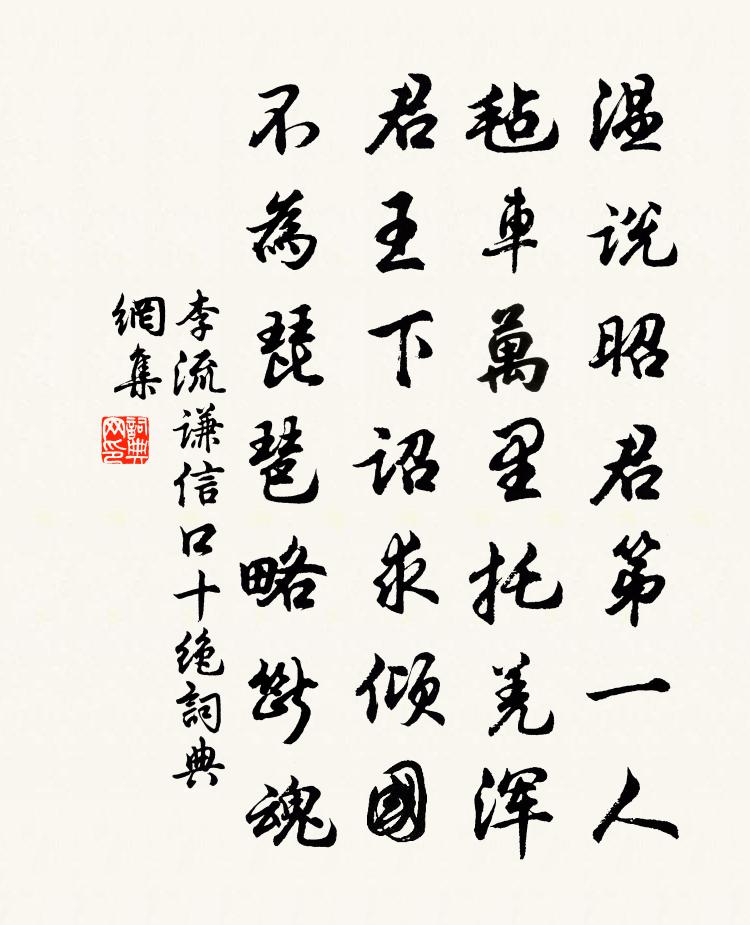 温说昭君第一人
毡車萬里托羌浑
君王下诏求倾國
不為琵琶略断魂
李流谦信口十绝詞典
網集
詞典网印